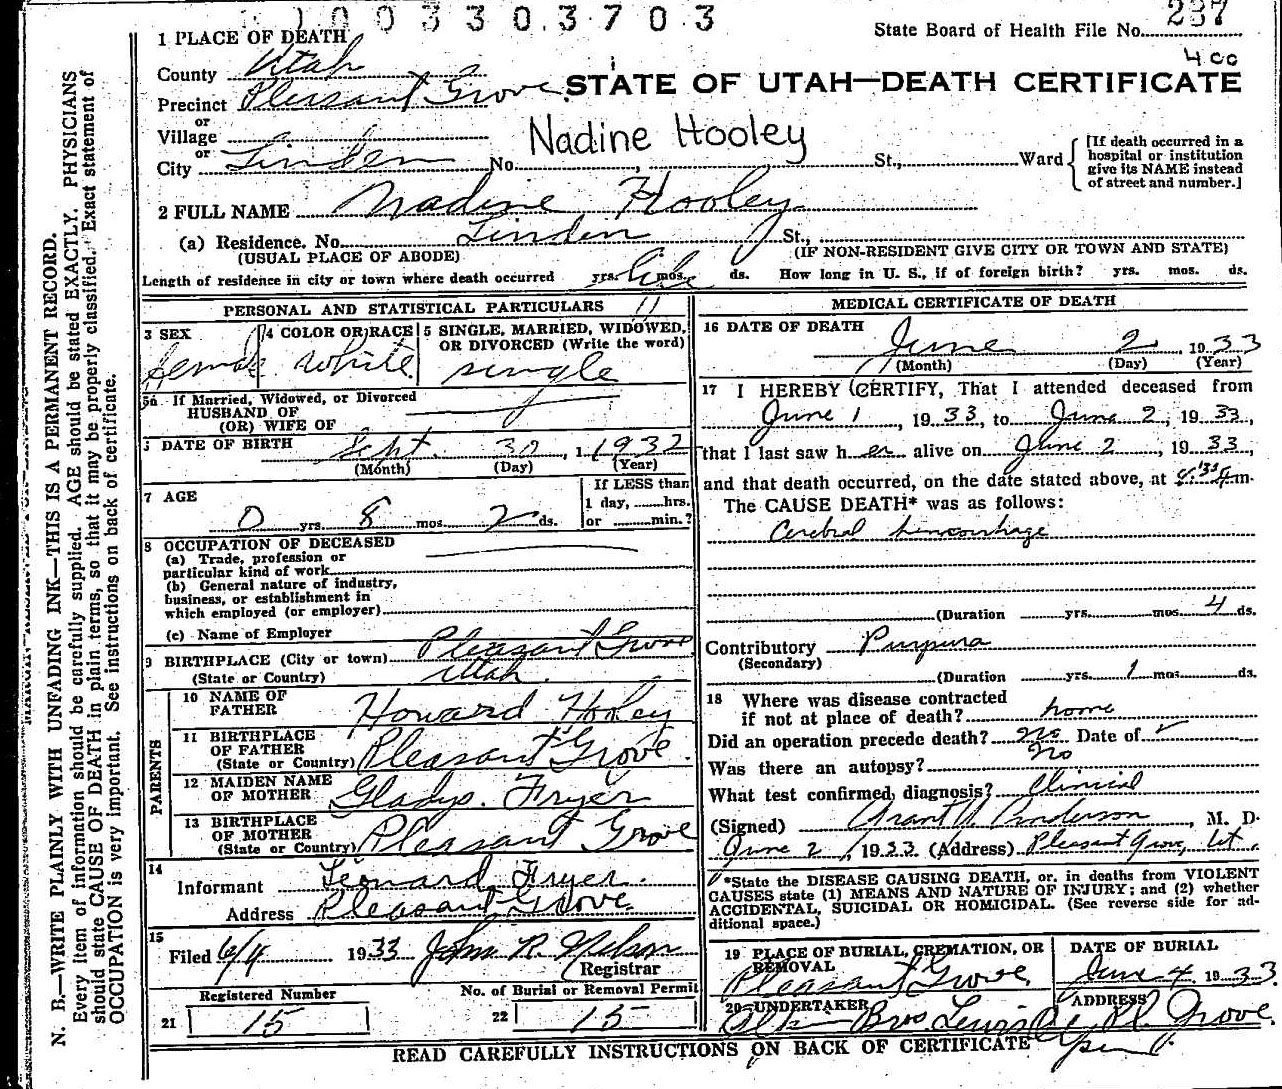 1003303703
State Board of Health File No. 237
1 PLACE OF DEATH
400
County Utah
STATE OF UTAH—DEATH CERTIFICATE
Precinct Pleasant Grove
or
Village
Nadine Hooley
or
City Linden No. St., Ward
[If death occurred in a hospital or institution give its NAME instead of street and number.]
2 FULL NAME Nadine Hooley
(a) Residence. No. Linden St.,
(USUAL PLACE OF ABODE) (IF NON-RESIDENT GIVE CITY OR TOWN AND STATE)
Length of residence in city or town where death occurred yrs. Life mos. ds. How long in U. S., if of foreign birth? yrs. mos. ds.
PERSONAL AND STATISTICAL PARTICULARS 11
3 SEX 4 COLOR OR RACE 5 SINGLE, MARRIED, WIDOWED, OR DIVORCED (Write the word)
female white single
5a If Married, Widowed, or Divorced
HUSBAND OF
(OR) WIFE OF
DATE OF BIRTH Sept. 30, 1932
(Month) (Day) (Year)
7 AGE
If LESS than
1 day, hrs.
or min.?
0 yrs. 8 mos. 2 ds.
8 OCCUPATION OF DECEASED
(a) Trade, profession or
particular kind of work
(b) General nature of industry,
business, or establishment in
which employed (or employer)
(c) Name of Employer
9 BIRTHPLACE (City or town) Pleasant Grove
(State or Country) Utah
PARENTS
10 NAME OF FATHER Howard Hooley
11 BIRTHPLACE OF FATHER (State or Country) Pleasant Grove
12 MAIDEN NAME OF MOTHER Gladys Fryer
13 BIRTHPLACE OF MOTHER (State or Country) Pleasant Grove
14
Informant Leonard Fryer
Address Pleasant Grove
15
Filed 6/4 1933 John R. Nelson
Registrar
Registered Number No. of Burial or Removal Permit
21 15 22 15
MEDICAL CERTIFICATE OF DEATH
16 DATE OF DEATH
June 2, 1933
(Month) (Day) (Year)
17 I HEREBY CERTIFY, That I attended deceased from
June 1, 1933, to June 2, 1933,
that I last saw her alive on June 2, 1933,
and that death occurred, on the date stated above, at m.
The CAUSE DEATH* was as follows:
Cerebral hemorrhage
(Duration yrs. mos. 4 ds.
Contributory Purpura
(Secondary)
(Duration yrs. 1 mos. ds.
18 Where was disease contracted
if not at place of death? home
Did an operation precede death? no Date of
Was there an autopsy? no
What test confirmed diagnosis? Clinical
(Signed) Grant Anderson, M. D.
June 2, 1933 (Address) Pleasant Grove, Ut.
*State the DISEASE CAUSING DEATH, or, in deaths from VIOLENT
CAUSES state (1) MEANS AND NATURE OF INJURY; and (2) whether
ACCIDENTAL, SUICIDAL OR HOMICIDAL. (See reverse side for ad-
ditional space.)
19 PLACE OF BURIAL, CREMATION, OR REMOVAL DATE OF BURIAL
Pleasant Grove June 4 1933
20 UNDERTAKER ADDRESS
Bros Lewis Pl. Grove
READ CAREFULLY INSTRUCTIONS ON BACK OF CERTIFICATE
N. B.—WRITE PLAINLY WITH UNFADING INK—THIS IS A PERMANENT RECORD.
Every item of information should be carefully supplied. AGE should be stated EXACTLY. PHYSICIANS
should state CAUSE OF DEATH in plain terms, so that it may be properly classified. Exact statement of
OCCUPATION is very important. See instructions on back of certificate.